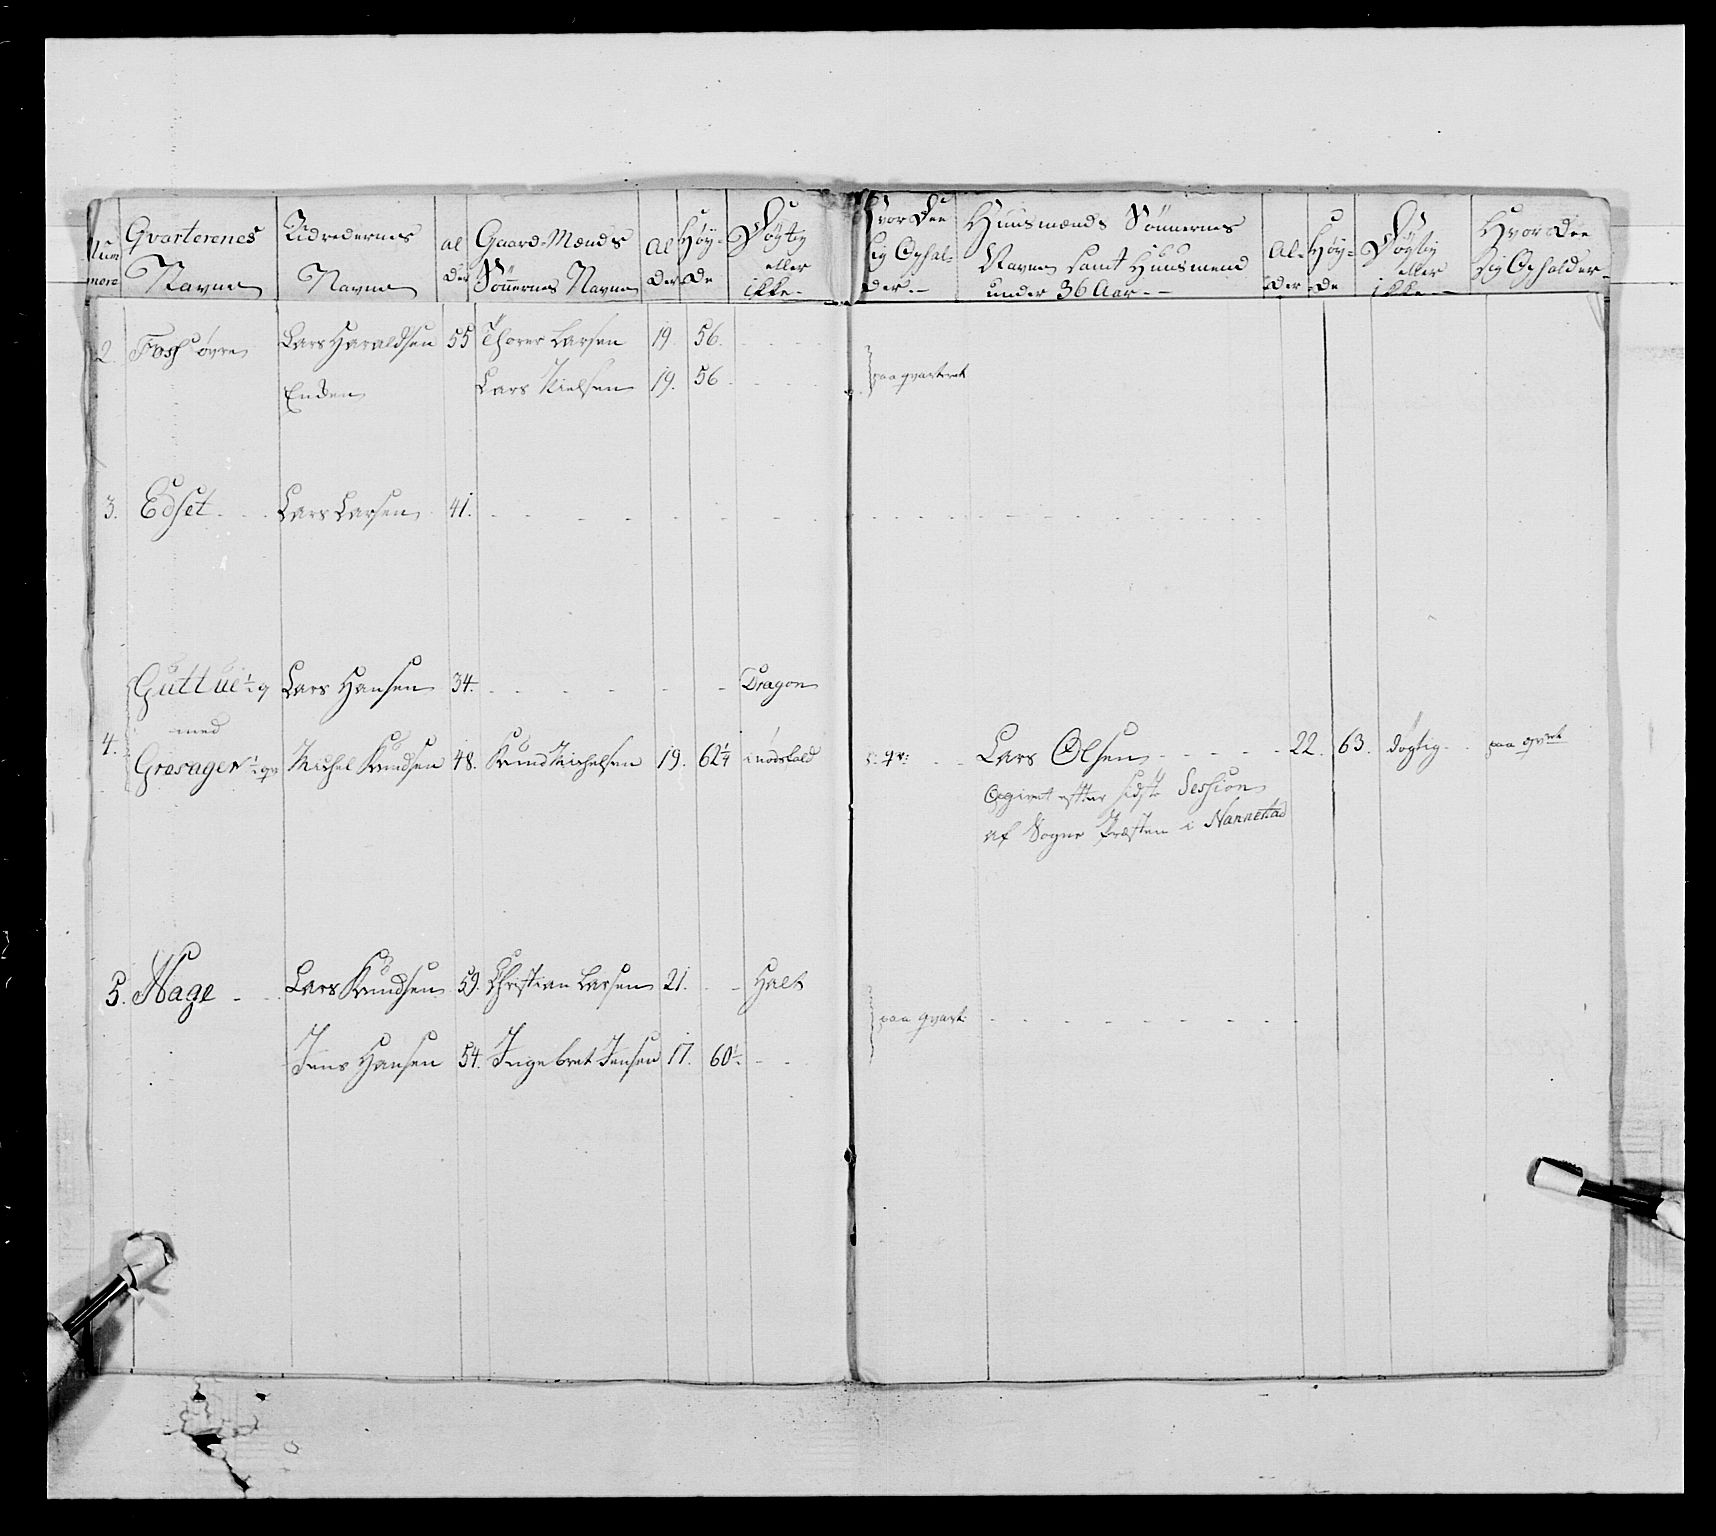 Num
mere
Qvarterenes
Navne
Ridredernes
Navne
al
der
Gaard-Mænds
Sönnernes Navne
Al
der
Höy-
de
Dögtig
eller
ikke.
Hvor dee
sig Ophol-
der.-
Huusmænds Sönnernes
Navne samt Huusmend
under 36 Aar.-
Al-
der
Höy-
de
Dögtig
eller
ikke-
Hvor dee
sig Opholder
2. Foss övre Lars Haraldsen 55 Thorer Larsen 19. 56.
Enden Lars Nielsen 19. 56 paa qvarteret
3. Edset Lars Larsen 41.
Guttue ½ q Lars Hansen 34. Dragon
med
4. Grosager ½ qv Michel Knudsen 48. Knud Michelsen 19. 62¼ i nödsfald Lars Olsen 22. 63. dögtig paa qvrt
Opgivet efter sidste Session
af Sogne Præsten i Nannestad
5. Hage Lars Knudsen 59. Christian Larsen 21. Halt
paa qvart.
Jens Hansen 54. Ingebret Jensen 17. 60½